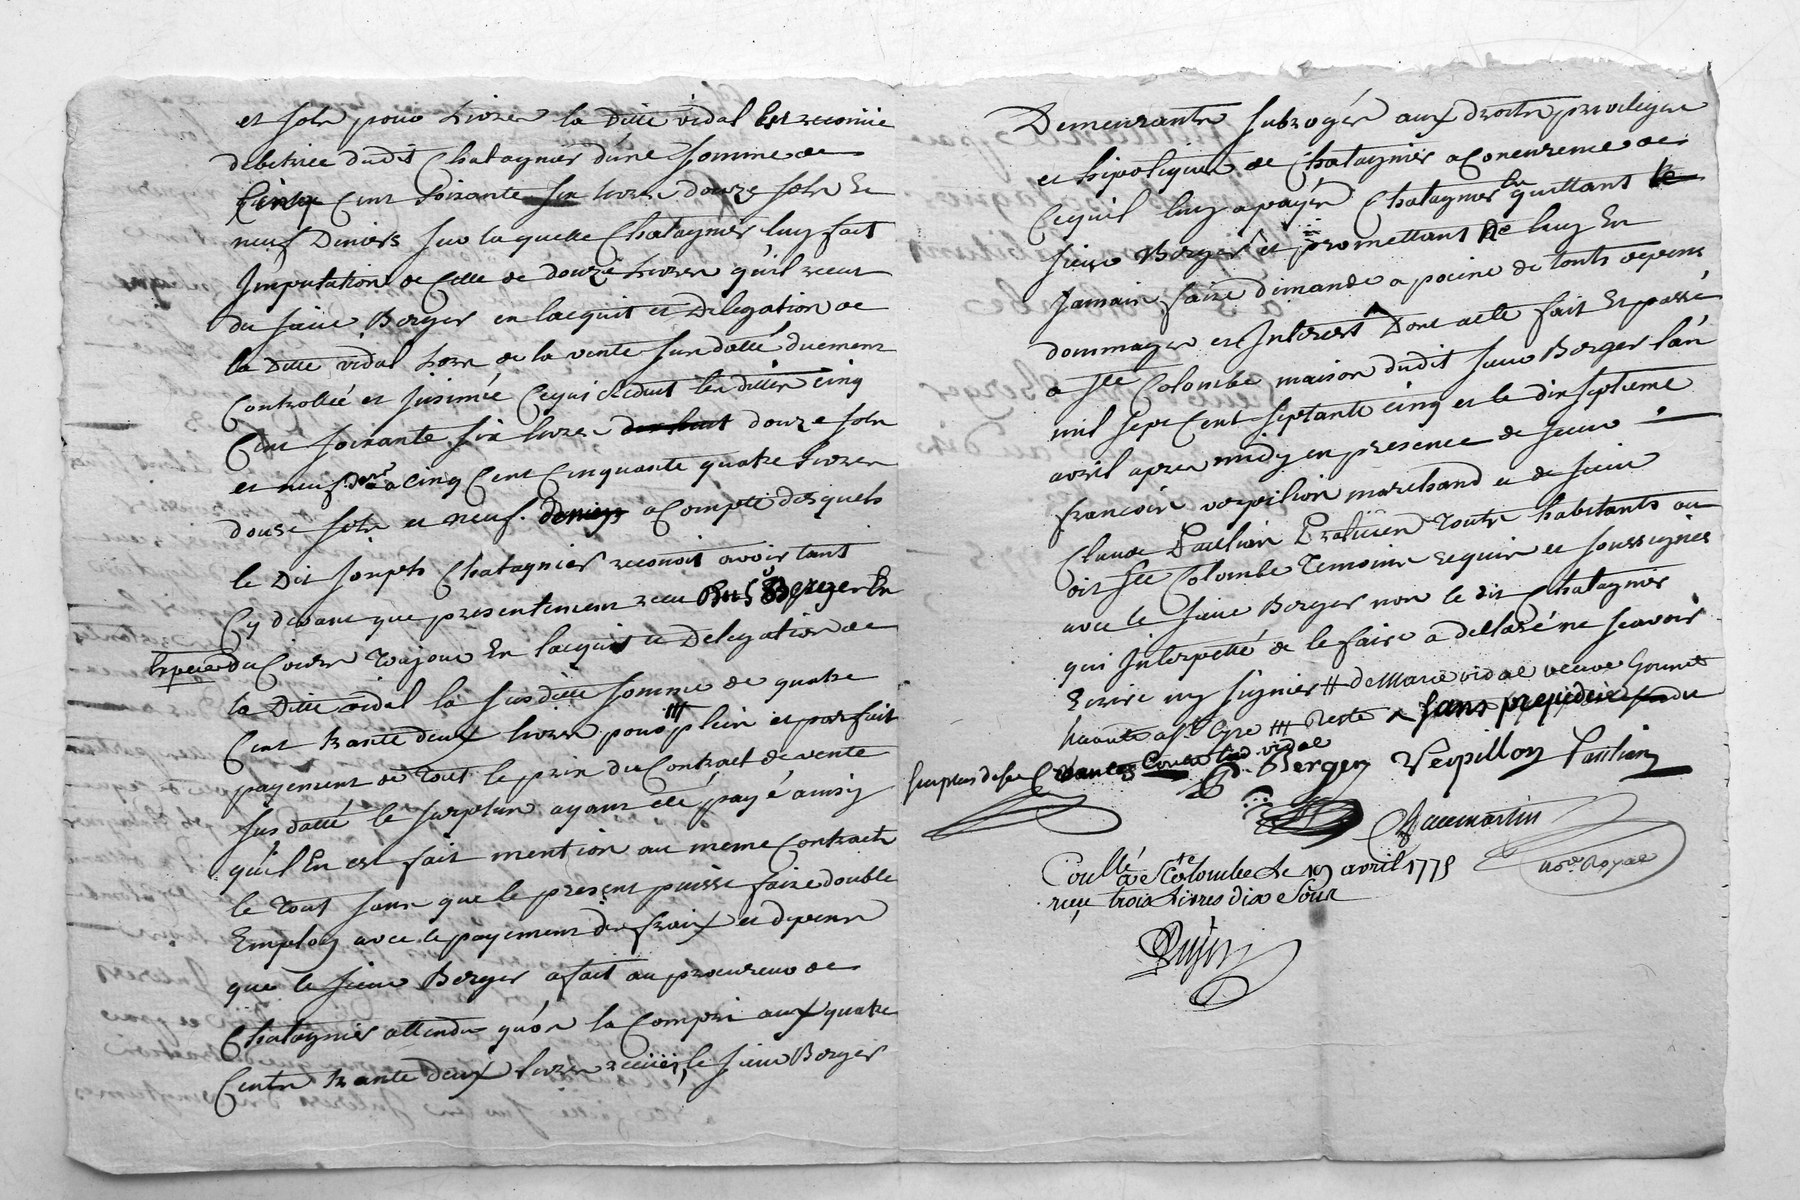 et sols pour Livres la Ditte vidal Est reconüe
debitrice dudit Chatagnier dune somme de
Cinq Cent soixante six livres douze sols Et
neuf Deniers sur laquelle Chatagnier luy fait
Imputation de Celle de douze Livres qu'il recut
du sieur Berger en lacquit et Delegation de
la Ditte vidal hors de la vente susdatté duement
Controllée et Insinüée Cequi reduit lesdittes cinq
Cent soixante six livres douze sols
et neuf d.ers a cinq Cent Cinquante quatre Livres
douse sols et neuf deniers acompte desquels
le Dit Joseph Chatagnier reconoit avoir tant
Cy devant que presentement receu dud. S.r Berger En
Especes du Cours Toujour En lacquit et Delegation de
la Ditte vidal la susditte somme de quatre
Cent trante deux livres pour /// plein et parfait
payement de tout le prix du Contract de vente
susdatté le surplus ayant eté payé ainsy
qu'il En est fait mention au meme Contract
le tout sans que le present puisse faire double
Employ avec le payement des fraix et depens
que le sieur Berger a fait au procureur de
Chatagnier attendu qu'on la Compri aux quatre
Cents trante deux livres recües, le sieur Berger
Demeurants subrogér aux droits privilege
et hipotèque de Chatagnier a Concurence de
Cequil luy apayér Chatagnier quittant le
sieur Berger et promettant Ne luy En
Jamais faire demande a peine de touts depens
dommages et Interest ^ Dont acte fait Et passé
a Ste Colombe maison dudit sieur Berger lan
mil sept Cent septante cinq et le dix septieme
avril apres midy en presence de sieur
francois verpilion marchand et de sieur
Claude Paulian Praticien touts habitants au
dit Ste Colombe Temoins requis et soussignés
avec le sieur Berger non le dit Chatagnier
qui Interpellé de le faire a declaré ne scavoir
Ecrire ny signier # de Marie vidal veuve Gounet
hante a St Cyre /// Reste ^ sans prejudice du
surplus de ses Creances Contre lad. vidal
Berger Verpillon Paulian
Chaumartin
not.re Royal
Con.llé a Ste Colombe Le 19 avril 1775
reçu trois Livres dix Sous